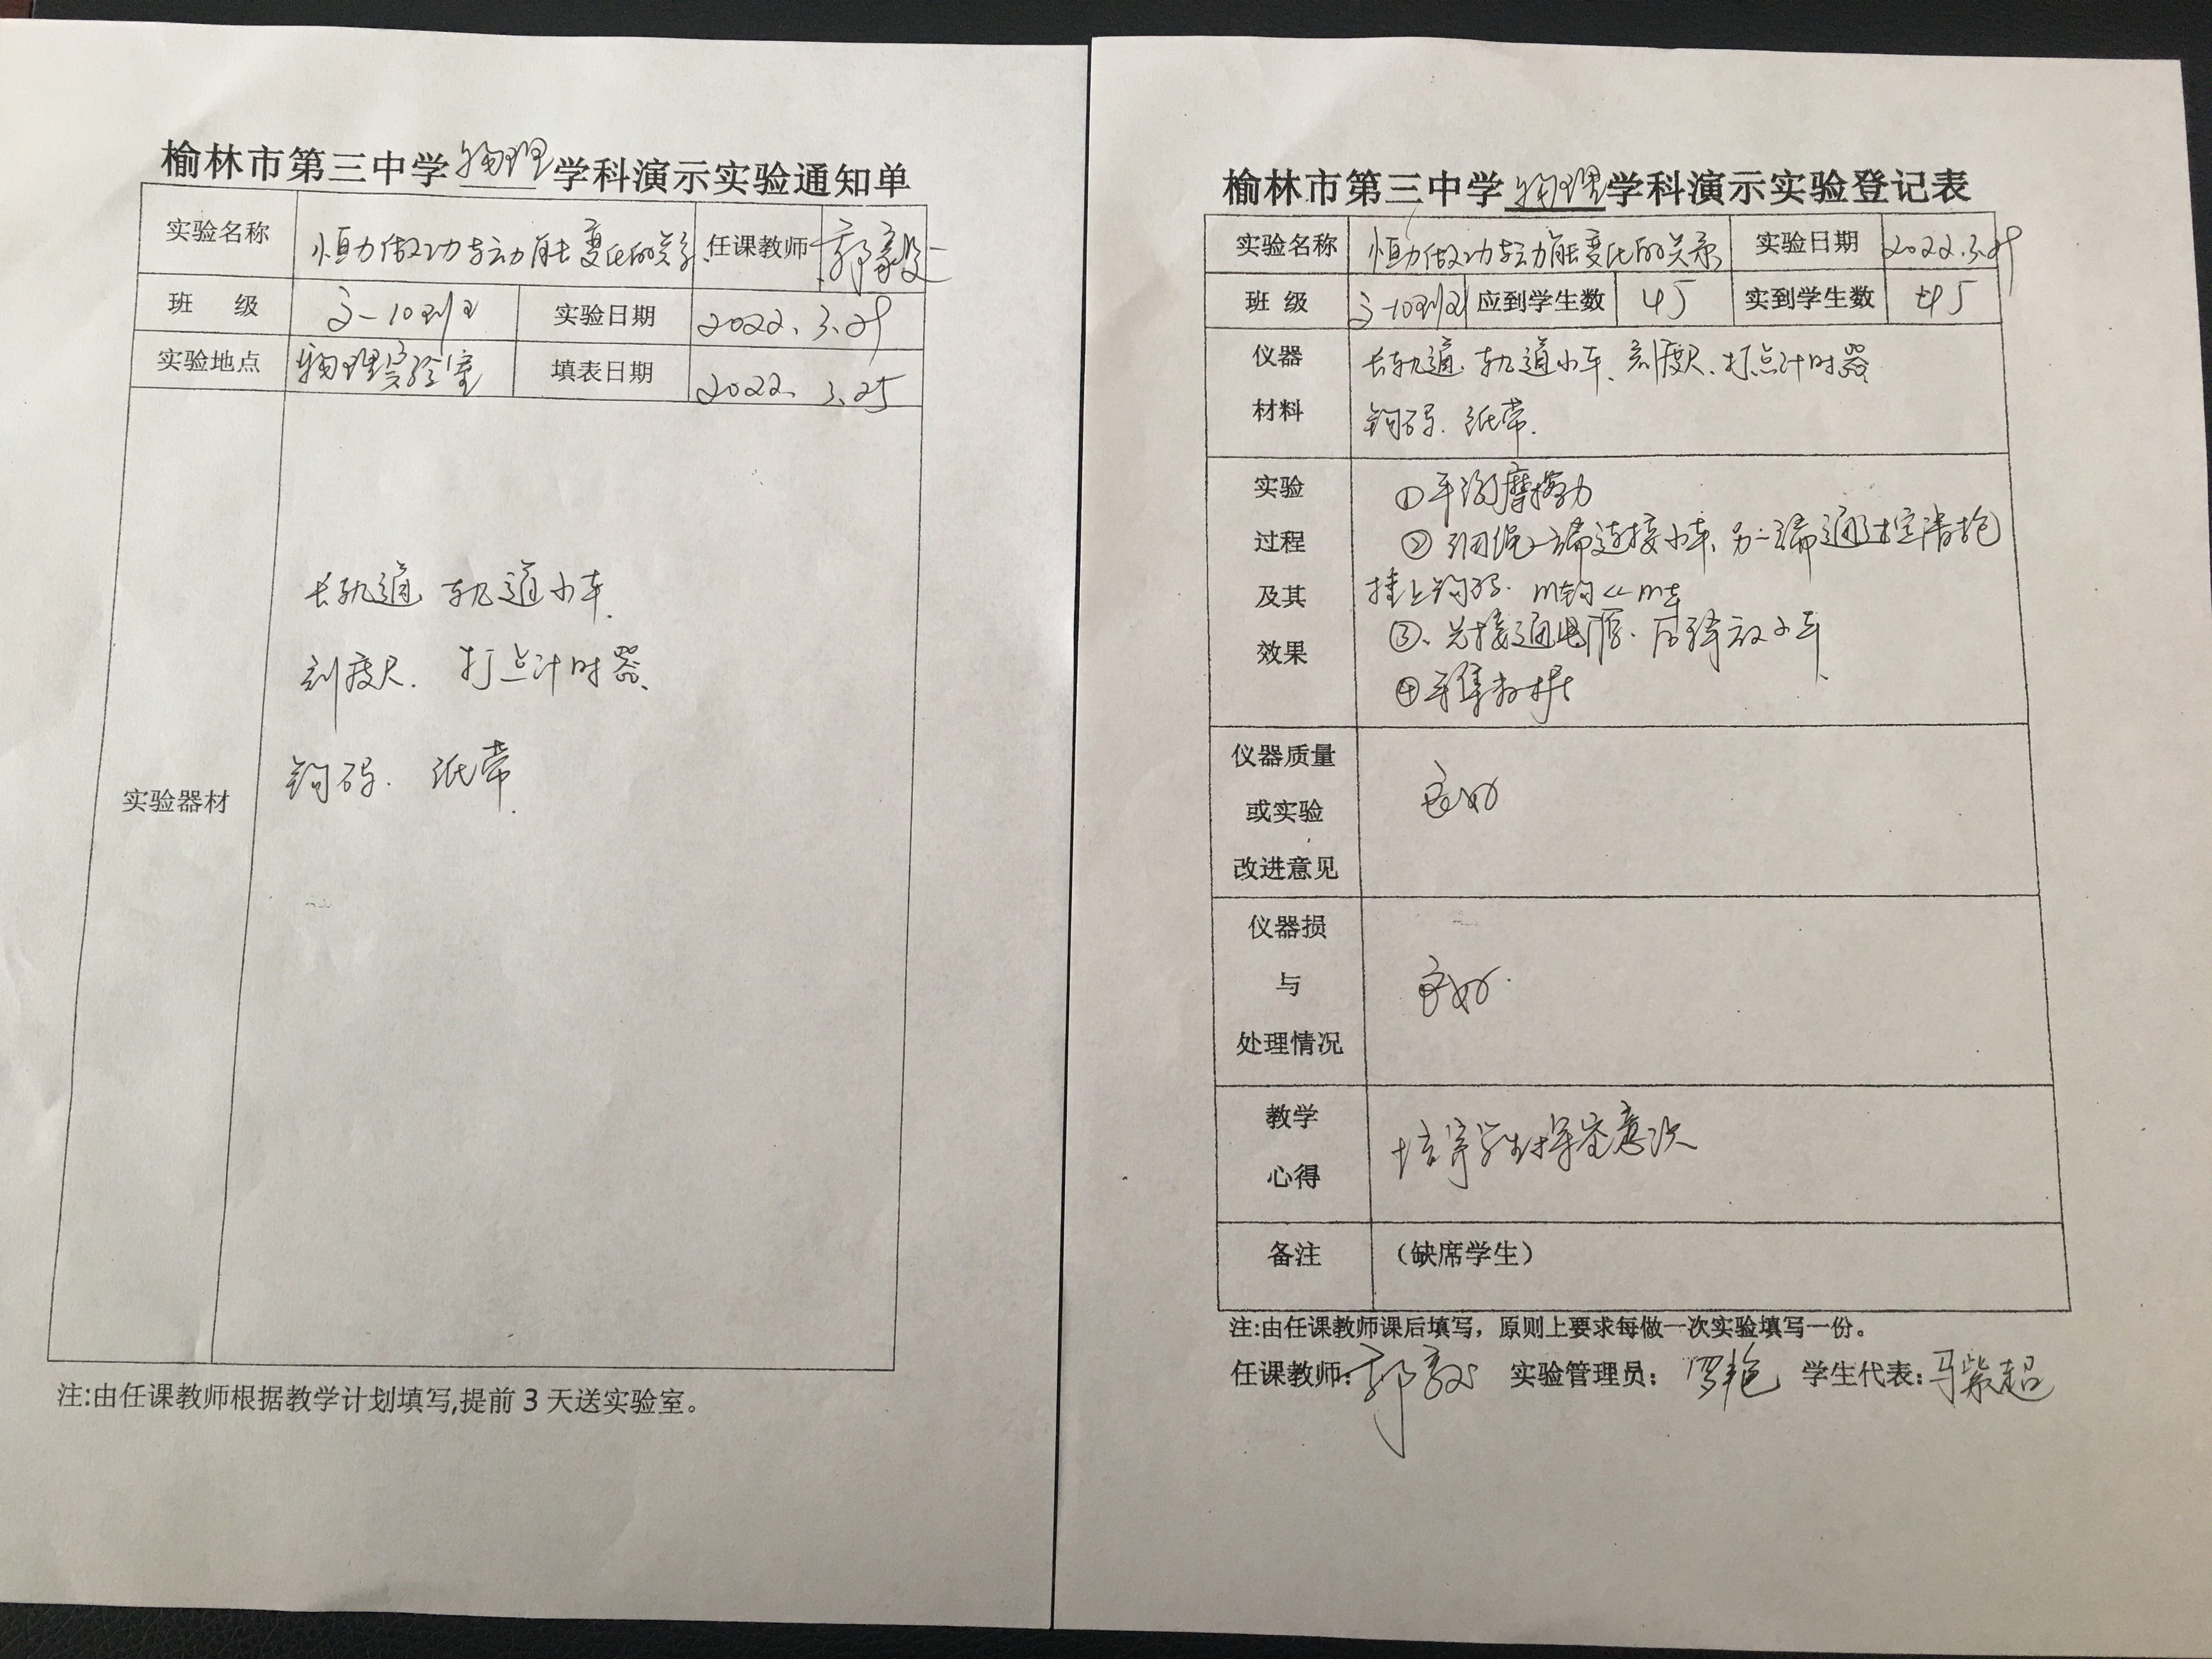 榆林市第三中学物理学科演示实验通知单
实验名称 恒力做功与动能变化的关系 任课教师 郭
班 级 高一10班 实验日期 2022.3.29
实验地点 物理实验室 填表日期 2022.3.25
实验器材
长轨道 轨道小车.
刻度尺. 打点计时器.
钩码. 纸带.
注:由任课教师根据教学计划填写,提前 3 天送实验室。
榆林市第三中学物理学科演示实验登记表
实验名称 恒力做功与动能变化的关系 实验日期 2022.3.29
班 级 高一10班 应到学生数 45 实到学生数 45
仪器材料
长轨道. 轨道小车. 刻度尺. 打点计时器
钩码. 纸带.
实验过程及其效果
①平衡摩擦力
②细绳一端连接小车、另一端通过定滑轮
挂上钩码. m钩<<m车
③、先接通电源. 后释放小车.
④采集数据
仪器质量或实验改进意见
良好
仪器损与处理情况
良好.
教学心得
培养学生探究意识
备注 （缺席学生）
注:由任课教师课后填写，原则上要求每做一次实验填写一份。
任课教师: 郭 实验管理员: 罗艳 学生代表: 马紫超